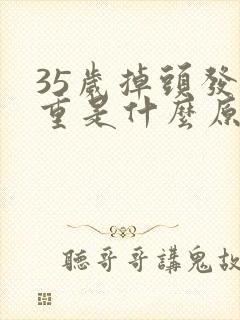 35歲掉頭發
重是什麼原
聽哥哥講鬼故